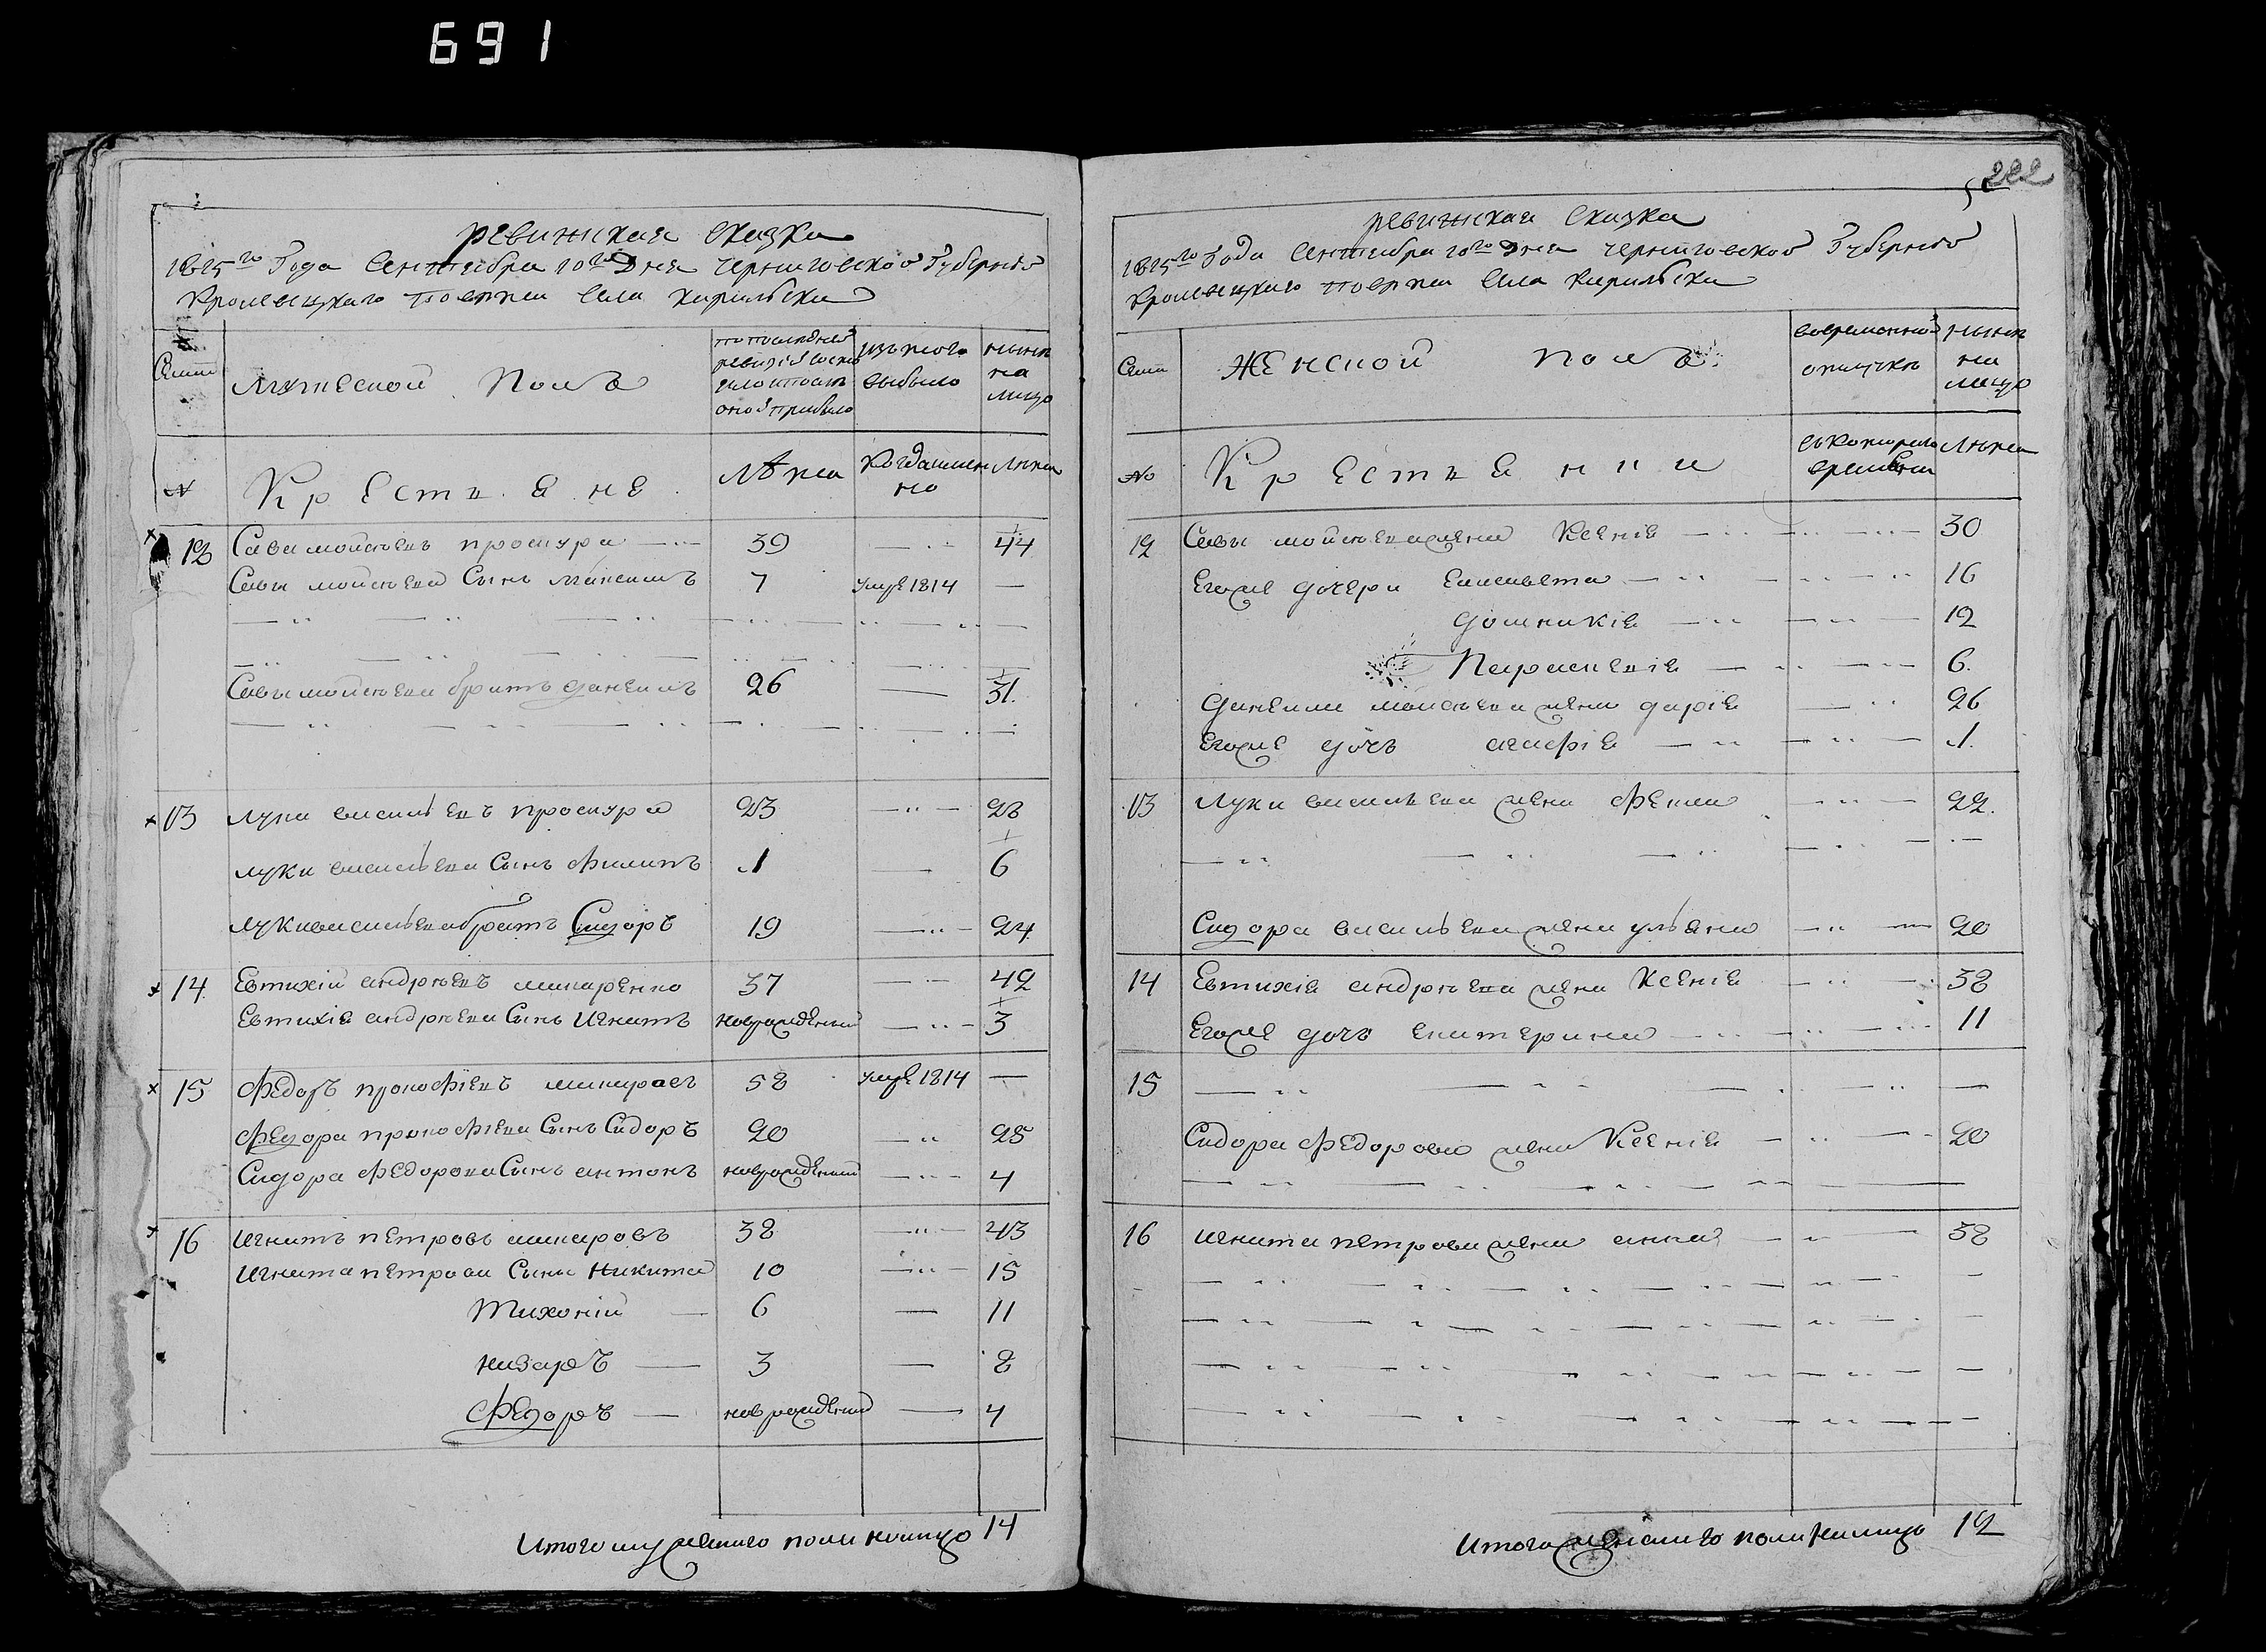 691
222
ревижская сказка
1815го Года Сентября 10го Дня черниговской Губерний
Кролевецкаго повета Села Кирильски
Семи
Мужеской Полъ
По последней ревизій состояло и после оной прибыло
изътого выбыло
ныне на лицо
№
Крестяне
Лѣта
Когда имянно
Лѣта
12 Сава мойсѣевъ проскура 39 — 44
Савы мойсѣева Сынъ Максимъ 7 умре 1814 —
Савы мойсѣева братъ данеилъ 26 — 31.
13 Лука василѣевъ проскура 23 — 28
луки василѣева Сынъ Филипъ 1 — 6
луки василѣева братъ Сидоръ 19 — 24
14 Евтихій андрѣевъ шкаренко 37 — 42
Евтихія андрѣева Сынъ Игнатъ новорожденный — 3
15 Федоръ прокофіевъ 58 умре 1814 —
Федора прокофіева Сынъ Сидоръ 20 — 25
Сидора Федорова Сынъ антонъ новорожденный — 4
16 Игнатъ петровъ 38 — 43
Игната петрова Сыны Никита 10 — 15
Тихоній — 6 — 11
назаръ — 3 — 8
Федоръ — новорожденный — 4
Итого мужескаго пола налицо 14
ревижская Сказка
1815го Года Сентября 10го Дня черниговской Губерний
Кролевецкаго повета Села Кирильски
Семи
Женской полъ.
вовременной отлучкѣ
ныне на лицо
№
Крестянки
съ котораго времени
Лѣта
12 Савы мойсѣева жена Ксенія 30
Егоже дочери Елисавета 16
домникія 12
Параскевія 6.
Данеила мойсѣева жена дарія 26
Егоже дочь агафія 1.
13 Луки василѣева жена Фекла 22.
Сидора василѣева жена улѣяна 20
14 Евтихія андрѣева жена Ксенія 38
Егоже дочь екатерина 11
15
Сидора Федорова жена Ксенія 20
16 игната петрова жена анна 38
Итого женскаго пола налицо 12